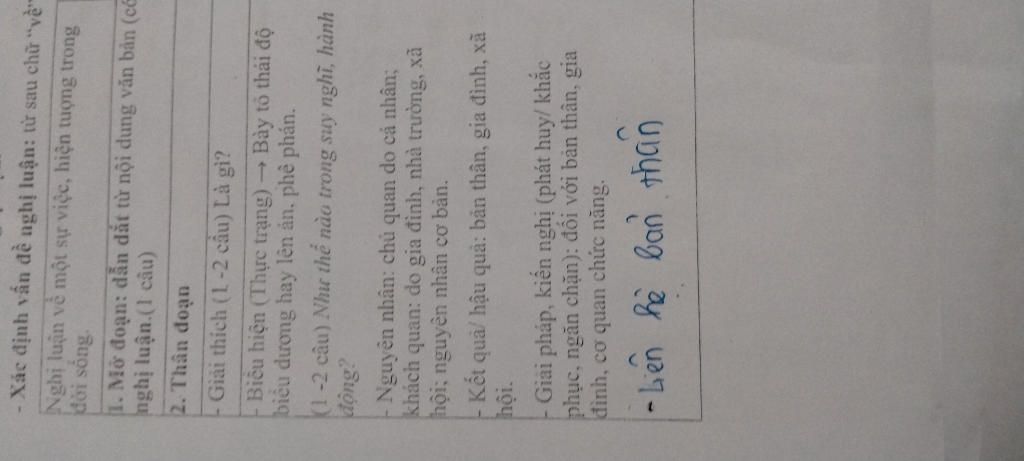 - Xác định vấn đề nghị luận: từ sau chữ "về"
Nghị luận về một sự việc, hiện tượng trong
đời sống.
1. Mở đoạn: dẫn dắt từ nội dung văn bản (có
nghị luận.(1 câu)
2. Thân đoạn
- Giải thích (1-2 câu) Là gì?
- Biểu hiện (Thực trạng) → Bày tỏ thái độ
biểu dương hay lên án, phê phán.
(1 -2 câu) Như thế nào trong suy nghĩ, hành
động?
- Nguyên nhân: chủ quan do cá nhân;
khách quan: do gia đình, nhà trường, xã
hội; nguyên nhân cơ bản.
- Kết quả/ hậu quả: bản thân, gia đình, xã
hội.
- Giải pháp, kiến nghị (phát huy/ khắc
phục, ngăn chặn): đối với bản thân, gia
đình, cơ quan chức năng.
- Liên hệ bản thân